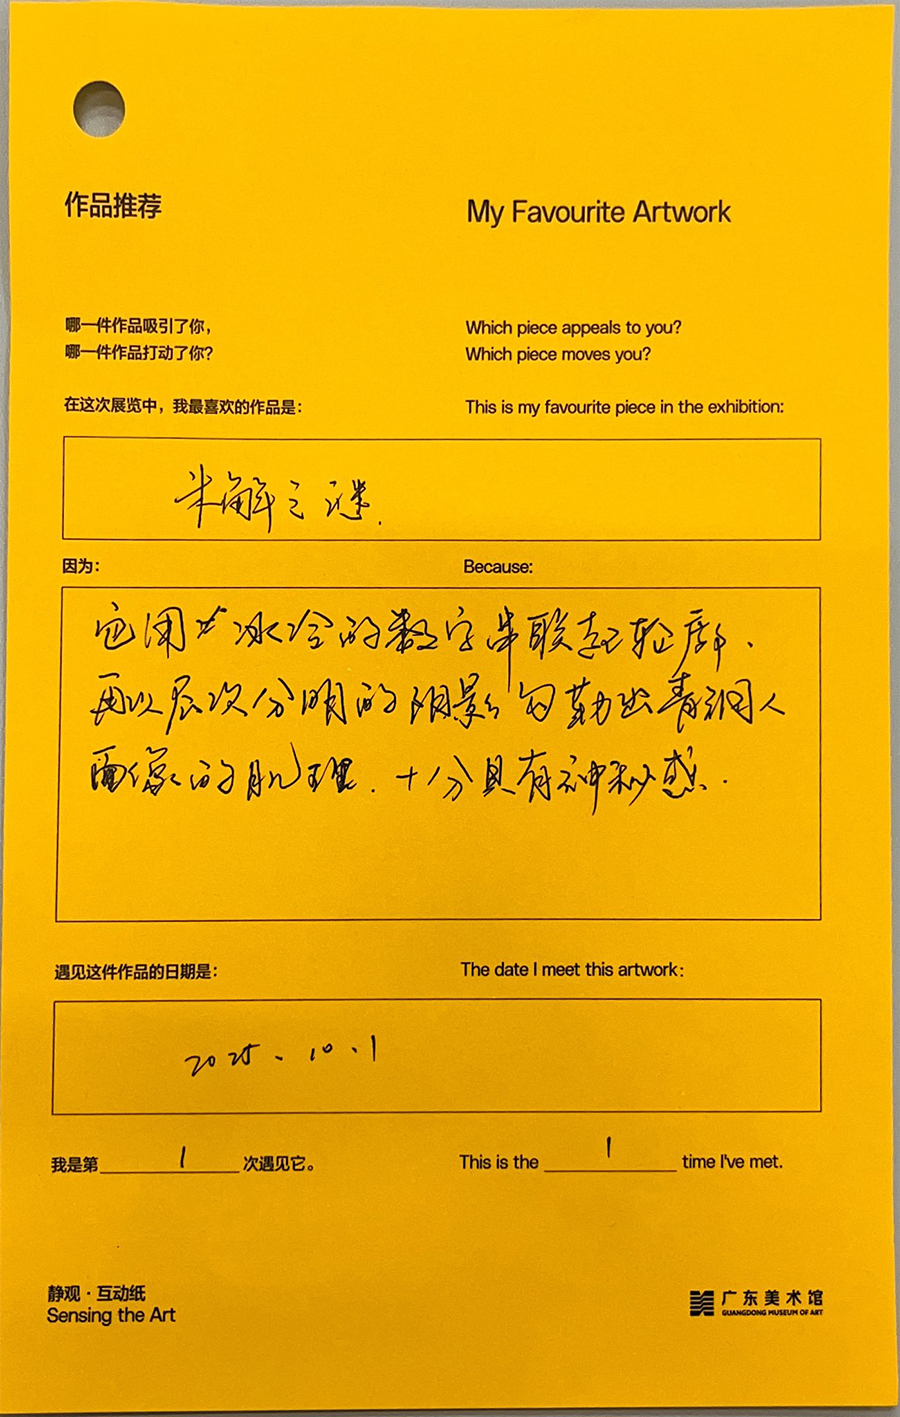 作品推荐
My Favourite Artwork
哪一件作品吸引了你，
哪一件作品打动了你？
Which piece appeals to you?
Which piece moves you?
在这次展览中，我最喜欢的作品是：
This is my favourite piece in the exhibition:
未解之谜.
因为：
Because:
它用冰冷的数字串联起轮廓、
再以层次分明的阴影勾勒出青铜人
面像的肌理. 十分具有神秘感.
遇见这件作品的日期是：
The date I meet this artwork:
2025、10、1
我是第 1 次遇见它。
This is the 1 time I've met.
静观·互动纸
Sensing the Art
广东美术馆
GUANGDONG MUSEUM OF ART